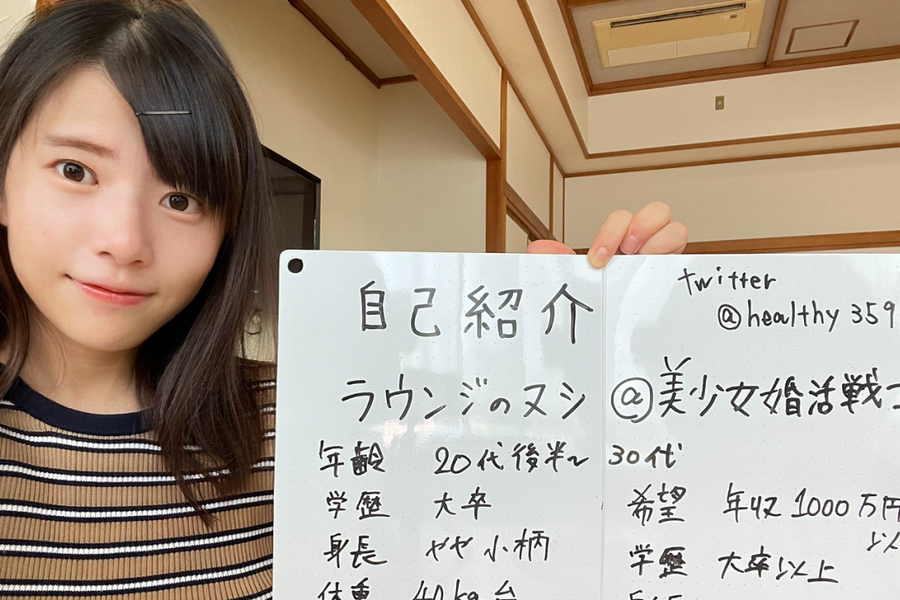 自己紹介
twitter
@healthy 359
ラウンジのヌシ @美少女婚活戦
年齢 20代後半~30代
学歴 大卒
希望 年収1000万円
以
身長 やや小柄
学歴 大卒以上
体重 40kg台